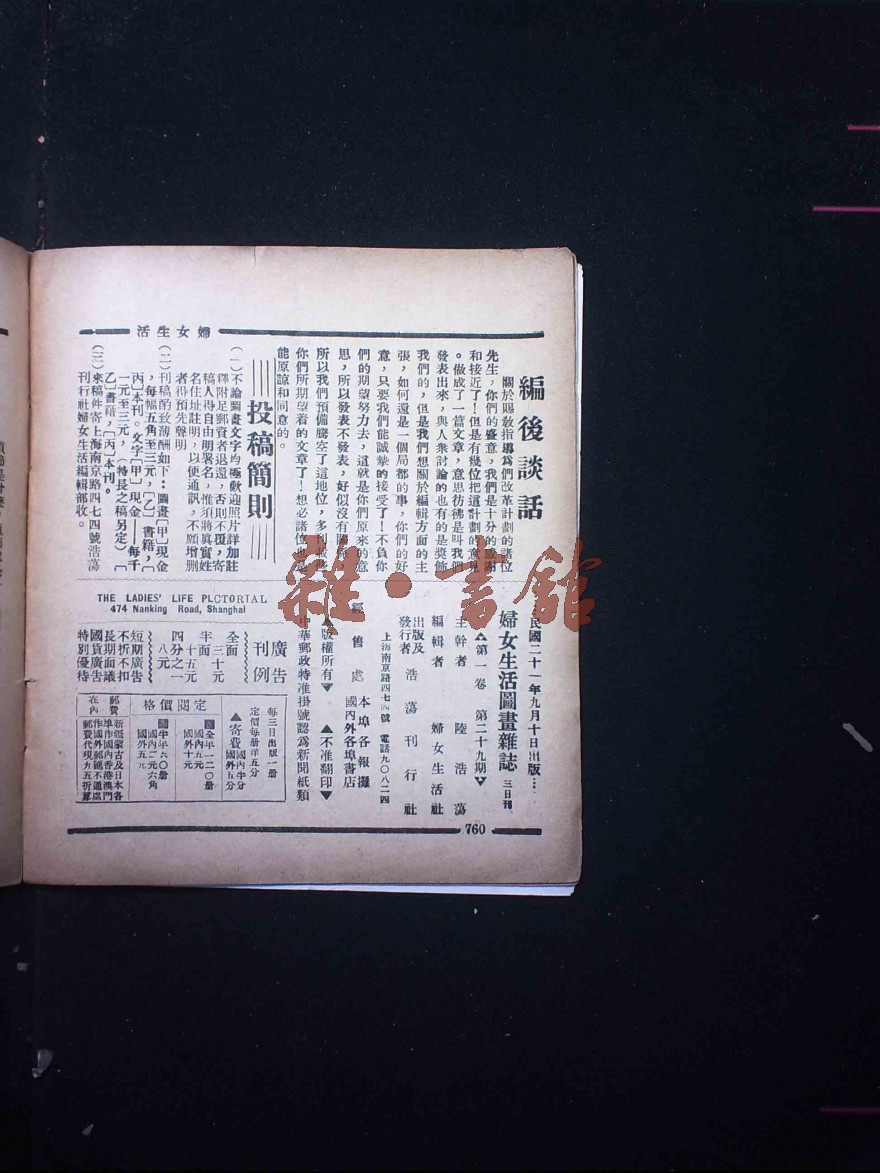 婦女生活
編後談話
關於賜敎指導爲們改革計劃的諸位
先生，你們的盛意，我們是十分的感謝
和接近了！但是有幾位把這計劃的意見
。做成了一篇文章，意思彷彿是叫我們
發表出來，與人衆討論的也有的是獎飾
我們的，但是我們想關於編輯方面的主
張，如何還是一個局都的事，你們的好
意，只要我們能誠摯的接受了！不負你
們的期望努力去，這就是你們原來的意
思，所以發表不發表，好似沒有關係，
所以我們預備騰空了這地位，多刊
你們所期望着的文章了！想必諸位也是
能原諒和同意的。
投稿簡則
（一）不論圖畫文字均極歡迎照片詳加註
釋附足郵資者退還，否則不覆，寄
稿人得自由明署名，惟須將眞實姓
名住址註明，以便通訊，不願增删
者得預先聲明
（二）刊稿酌致薄酬如下：圖畫［甲］現金
，每幅五角至三元，［乙］書籍，［
丙］本刊。文字［甲］現金——每千
一元至三元，（特長之稿另定）［
乙］書籍，［丙］本刊。
（三）來稿件寄上海南京路四七四號浩蕩
刊行社婦女生活編輯部收。
民國二十一年九月十日出版…
婦女生活圖畫雜誌 三日刊
▲第一卷 第二十九期▼
主幹者 陸浩蕩
編輯者 婦女生活社
出版及
發行者 浩蕩刊行社
上海南京路四七四號 電話九〇八二四
經售處 本埠各報攤
國內外各埠書店
▲版權所有▼ ▲不准翻印▼
中華郵政特准掛號認爲新聞紙類
廣告
刊例
全面 三十元
半面 十五元
四分之一 八元
短期廣告
不折不扣
長期面議
國貨廣告
特別優待
THE LADIES' LIFE PLCTORIAL
474 Nanking Road, Shanghai
每三日出版一册
定價每册洋五分
▲寄費 國內半分
國外五分
定閱價格
全年一二〇册
國內五元
國外十元
半年六〇册
國內二元六角
國外五元
郵費在內
新疆蒙古及日本各
埠作國內香港澳門
作國外郵匯不通處
郵費代現九五折算
760
雜·書館